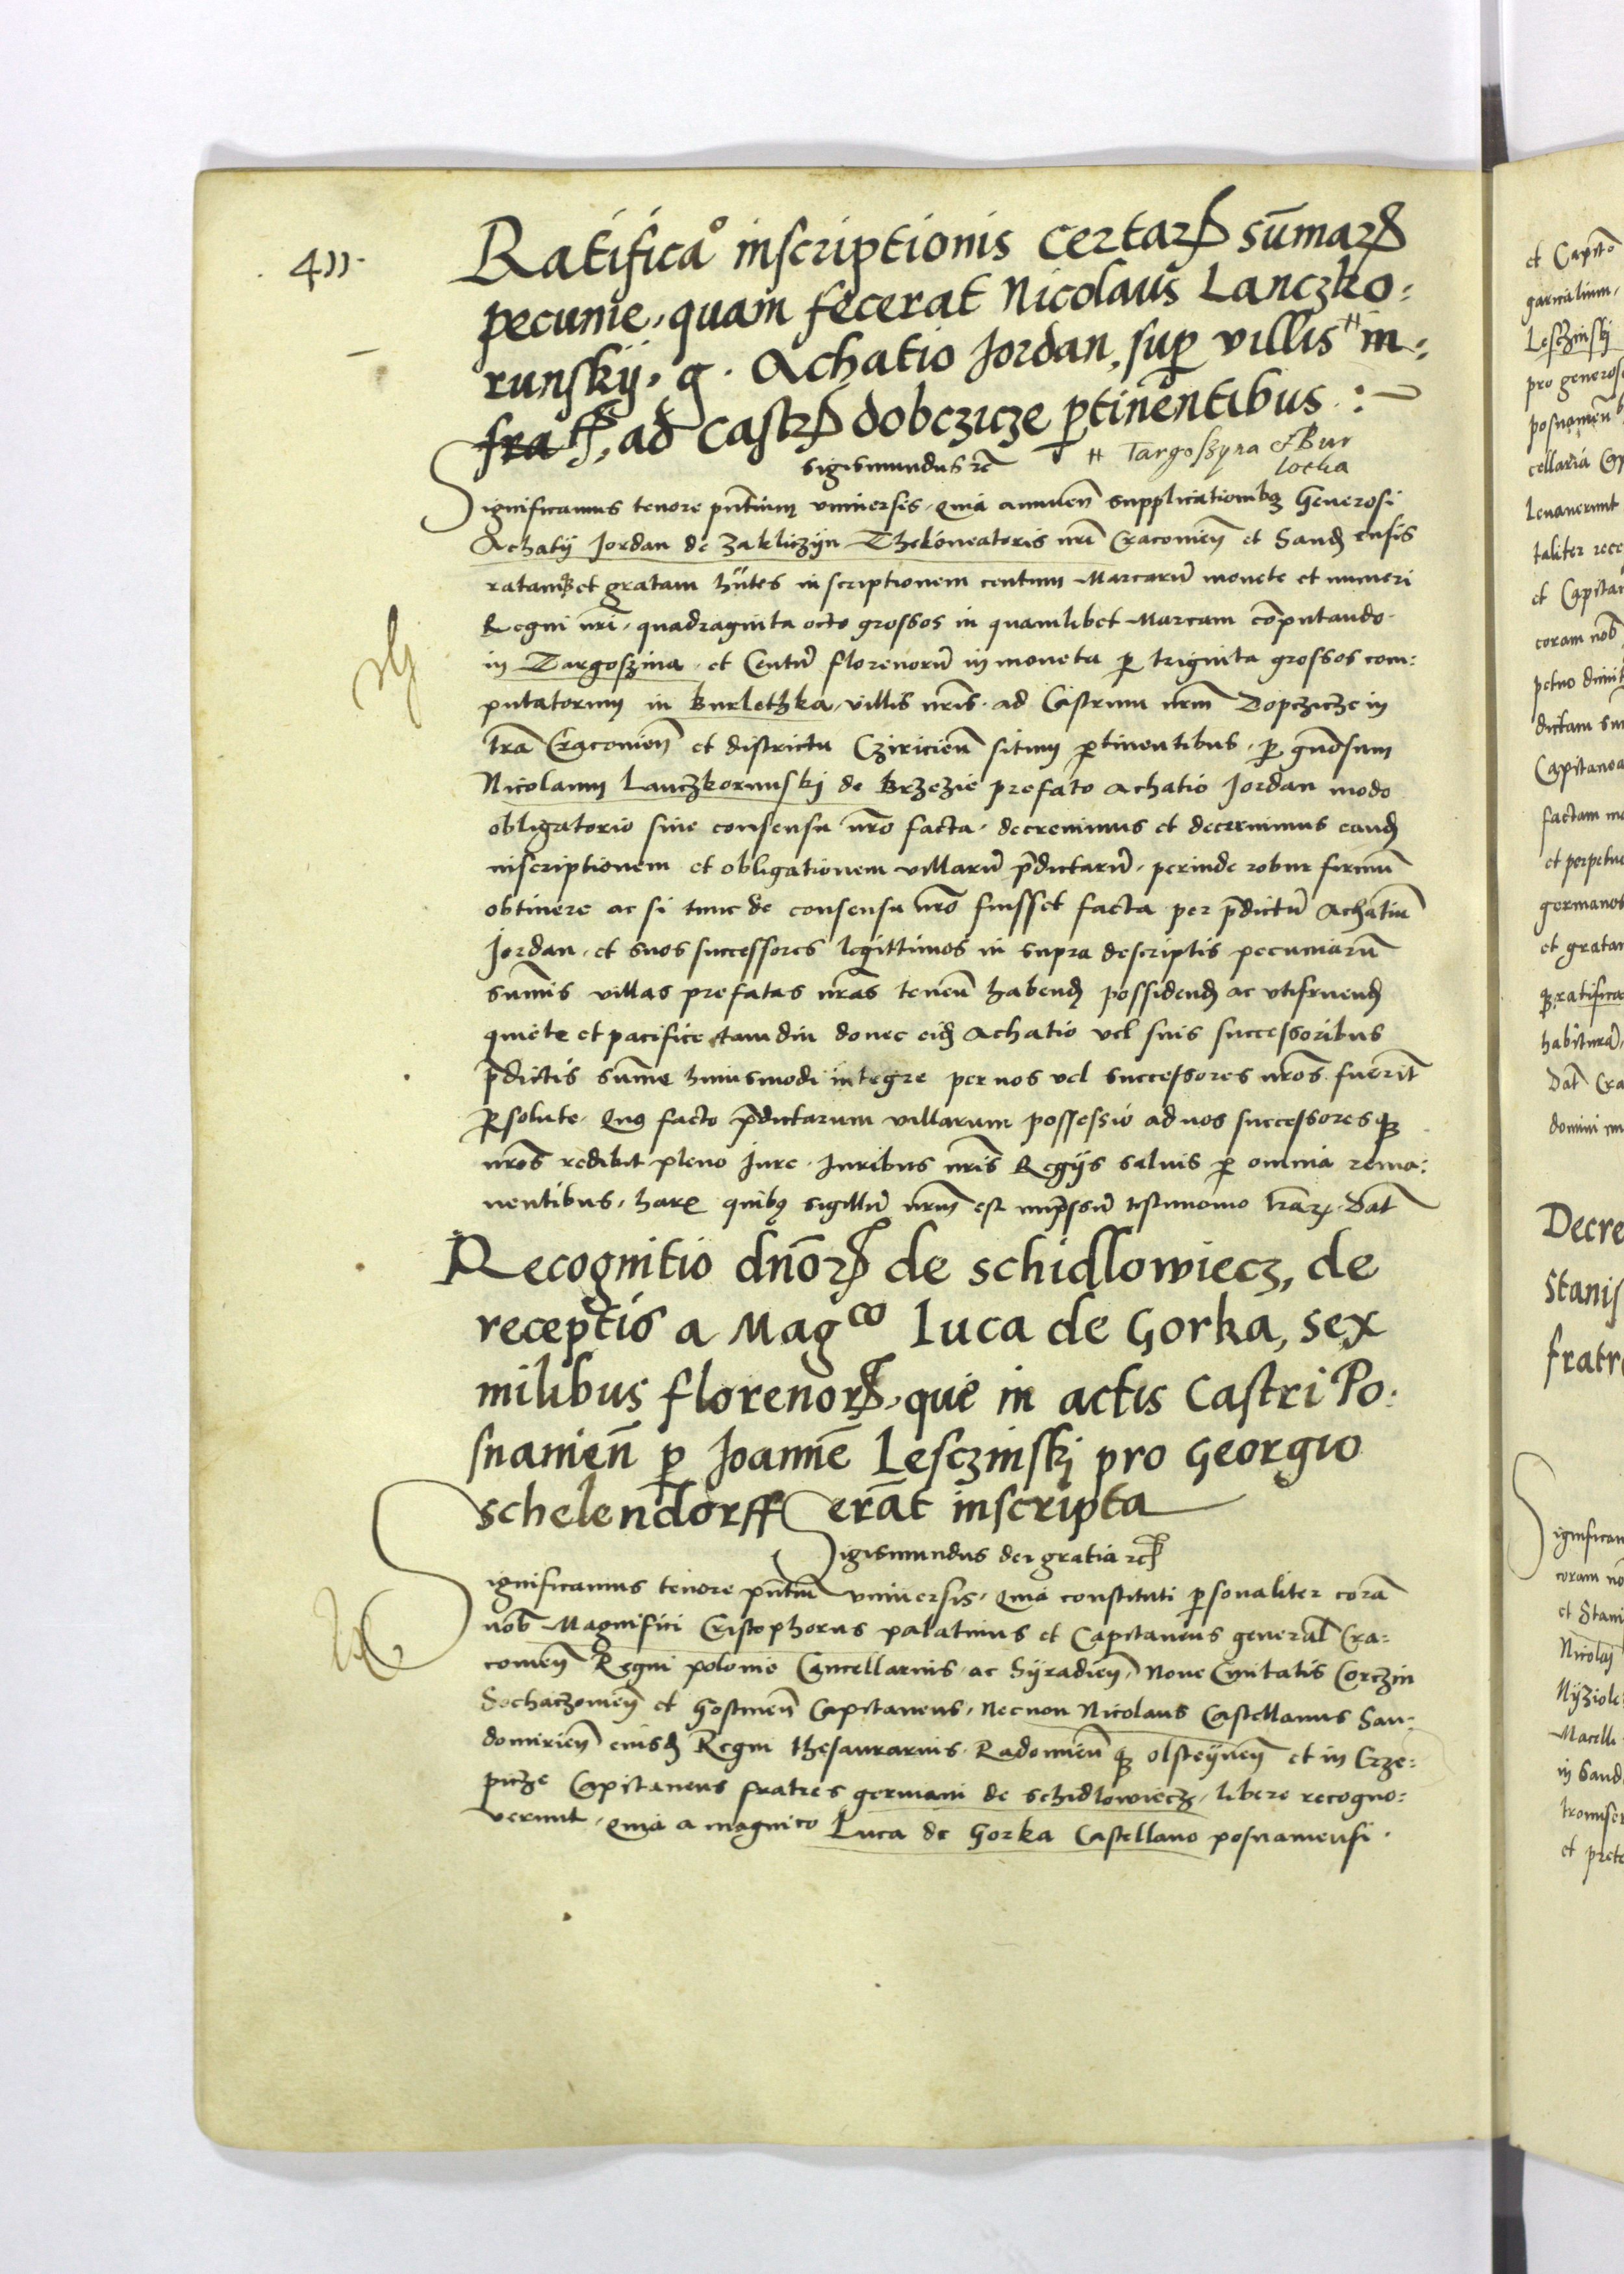 411.
Ratifica° inscriptionis certarꝝ sūmarꝝ
pecunie, quam fecerat Nicolaus Lanczko:
runskij, g. Achatio Jordan, suꝑ villis # in:
fratꝭ, ad castrꝝ dobczicze ꝑtinentibus :—
# Targoszyna & Bur
locka
Sigismundus ꝛc̄
Significamus tenore pn̄tium universis, quia annuen̄ supplicationibꝫ Generosi
Achatij Jordan de Zakliczyn Thelōneatoris nr̄i Cracovien̄ et Sandecensis
ratamqꝫ et gratam hn̄tes inscriptionem centum Marcarū monete et numeri
Regni nr̄i, quadraginta octo grossos in quamlibet Marcam cōputando.
in Targoszina, et Centū florenorū in moneta ꝑ triginta grossos com:
putatorum in Burlethka, villis nr̄is. ad Castrum nrm̄ Dopczicze in
tr̄a Cracovien̄ et districtu Cziricien̄ situm ꝑtinentibus, ꝑ gn̄osum
Nicolaum Lanczkorunskj de Brzezie prefato Achatio Jordan modo
obligatorio sine consensu nr̄o facta, decrevimus et decernimus eandē
inscriptionem et obligationem villarū p̄dictarū, perinde robur firmū
obtinere ac si tunc de consensu nr̄o fuisset facta per p̄dictū Achatiū
Jordan, et suos successores legittimos in supra descriptis pecuniarū
sum̄is villas prefatas nr̄as tenen̄ habend̄ possidend̄ ac utifruend̄
quiete et pacifice tamdiu donec eid̄ Achatio vel suis successoribus
p̄dictis sum̄e huiusmodi integre per nos vel successores nr̄os fuerīt
Rsolute. Quo facto p̄dictarum villarum possessio ad nos successoresqꝫ
nr̄os redibit pleno iure. Juribus nr̄is Regijs salvis ꝑ omnia rema:
nentibus, harꝝ quibꝫ sigillū nrm̄ est imp̄ssū testimonio lr̄arꝝ. Dat̄
Recognitio dn̄orꝝ de schidlowiecz, de
receptis a Magco Luca de Gorka, sex
milibus florenorꝝ, que in actis Castri Po:
snanien̄ ꝑ Joannē Lesczinskj pro Georgio
schelendorff erāt inscripta
Sigismundus dei gratia ꝛc̄
Significamus tenore pn̄tiū universis, Quia constituti ꝑsonaliter corā
nob̄ Magnifici Cristophorus palatinus et Capitaneus general̄ Cra:
covien̄ Regni polonie Cancellarius ac Syradien̄, Nove Civitatis Corczin
Sochaczovien̄ et Gostinen̄ Capitaneus, Necnon Nicolaus Castellanus San:
domirien̄ eiusd̄ Regni thesaurarius. Radomien̄qꝫ olsteynen̄ et in Crze:
picze Capitaneus fratres germani de schidlowiecz, libere recogno:
verunt, Quia a magnico Luca de Gorka Castellano posnaniensi.
et Capitō
Lesczinskj
pro generos
posnanien̄
cellaria
levaverunt
taliter rece
et Capitan
coram nob̄
dictam
Capitanea
factam
et perpetu
germanos
et gratam
ratifica
habitura
Dat̄ Cra
domini
Decre
Stanis
fratre
Significam
coram no
et Stani
Nicolaj
et prete